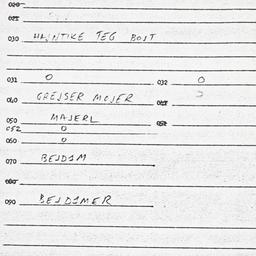 020
021
030 HAINTIKE TEG BOIT
031 0 032 0
040 GREJSER MOJER
050 MAJERL 051
052 0
060 0
070 BEJDSM
080
090 BEJDSMER